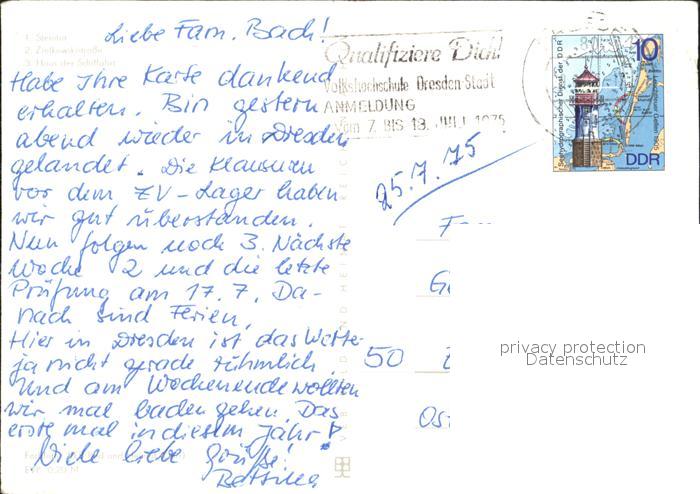 Liebe Fam. Bach!
1. Sternter
2. Ziolkowskistraße
3. Haus der Schiffahrt
Habe Ihre Karte dankend
erhalten. Bin gestern
abend wieder in Dresden
gelandet. Die Klausuren
vor dem ZV-Lager haben
wir gut überstanden.
Nun folgen noch 3. Nächste
Woche 2 und die letzte
Prüfung am 17.7. Da-
nach sind Ferien.
Hier in Dresden ist das Wetter
ja nicht gerade rühmlich.
Und am Wochenende wollten
wir mal baden gehen. Das
erste mal in diesem Jahr!
Viele liebe Grüße!
Bettina
EVP 0,20 M
Qualifiziere Dich!
Volkshochschule Dresden-Stadt
ANMELDUNG
vom 7. BIS 18. JULI 1975
25.7.75
10
Seehydrographischer Dienst der DDR
DDR
50
privacy protection
Datenschutz